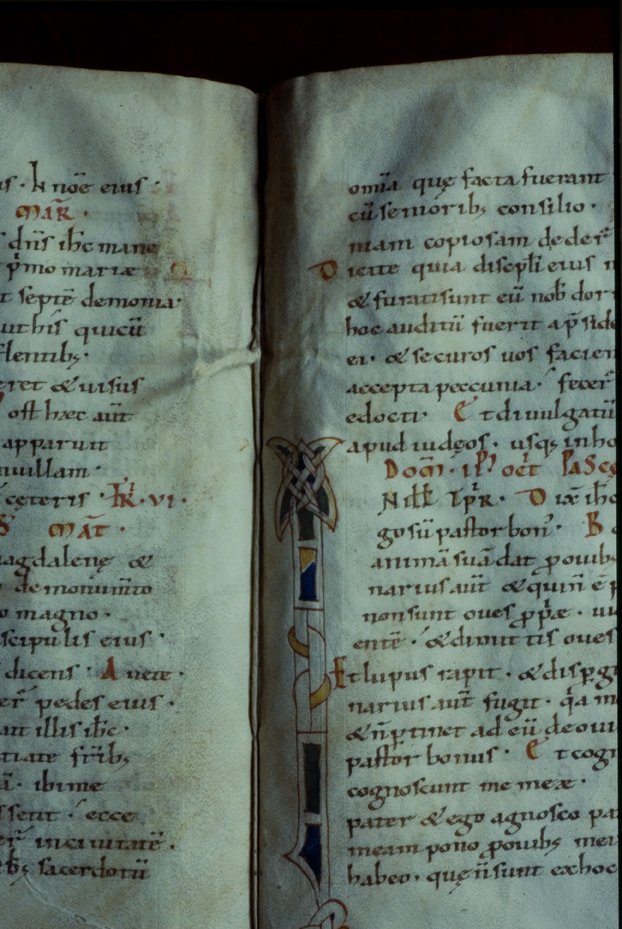 nom̄e eius :
MAR̄ ·
dn̄s ih̄c mane
p̄mo mariae
t septē demonia ·
quicū
flentib; ·
eret & uisus
ost hæc aūt
apparuit
in uillam ·
cęteris · K̄R · VI ·
MAT̄ ·
agdalenę &
demoniū
o magno ·
scipulis eius ·
dicens · Auete ·
pedes eius ·
ait illis ih̄c ·
tiate frīb;
ibi me
ssent · ecce
in ciuitatē ·
sacerdotū
omīa quę facta fuerant
cū seniorib; consilio ·
niam copiosam deder̄
Dicite quia discipl̄i eius n
& furati sunt eū nob̄ dor
hoc auditū fuerit a p̄side
ei · & securos uos facien
accepta peccunia · fecer̄
edocti · Et diuulgatū
apud iudęos · usq; in ho
Dom̄ · II · oct̄ PASC
N ill̄ TPR̄ · Dix̄ ih̄c
go sū pastor bon᾿ · B
animā suā dat ꝓ ouib;
narius aūt & qui n̄ ē p
non sunt oues ꝓp̄æ · ui
entē · & dimittis oues
Et lupus rapit · & disꝑg
narius aūt fugit · q̄a m
& n̄ ꝑtinet ad eū de oui
pastor bonus · Et cogn
cognoscunt me meæ ·
pater & ego agnosco pa
meam pono ꝓ ouib; mei
habeo · quę n̄ sunt ex hoc